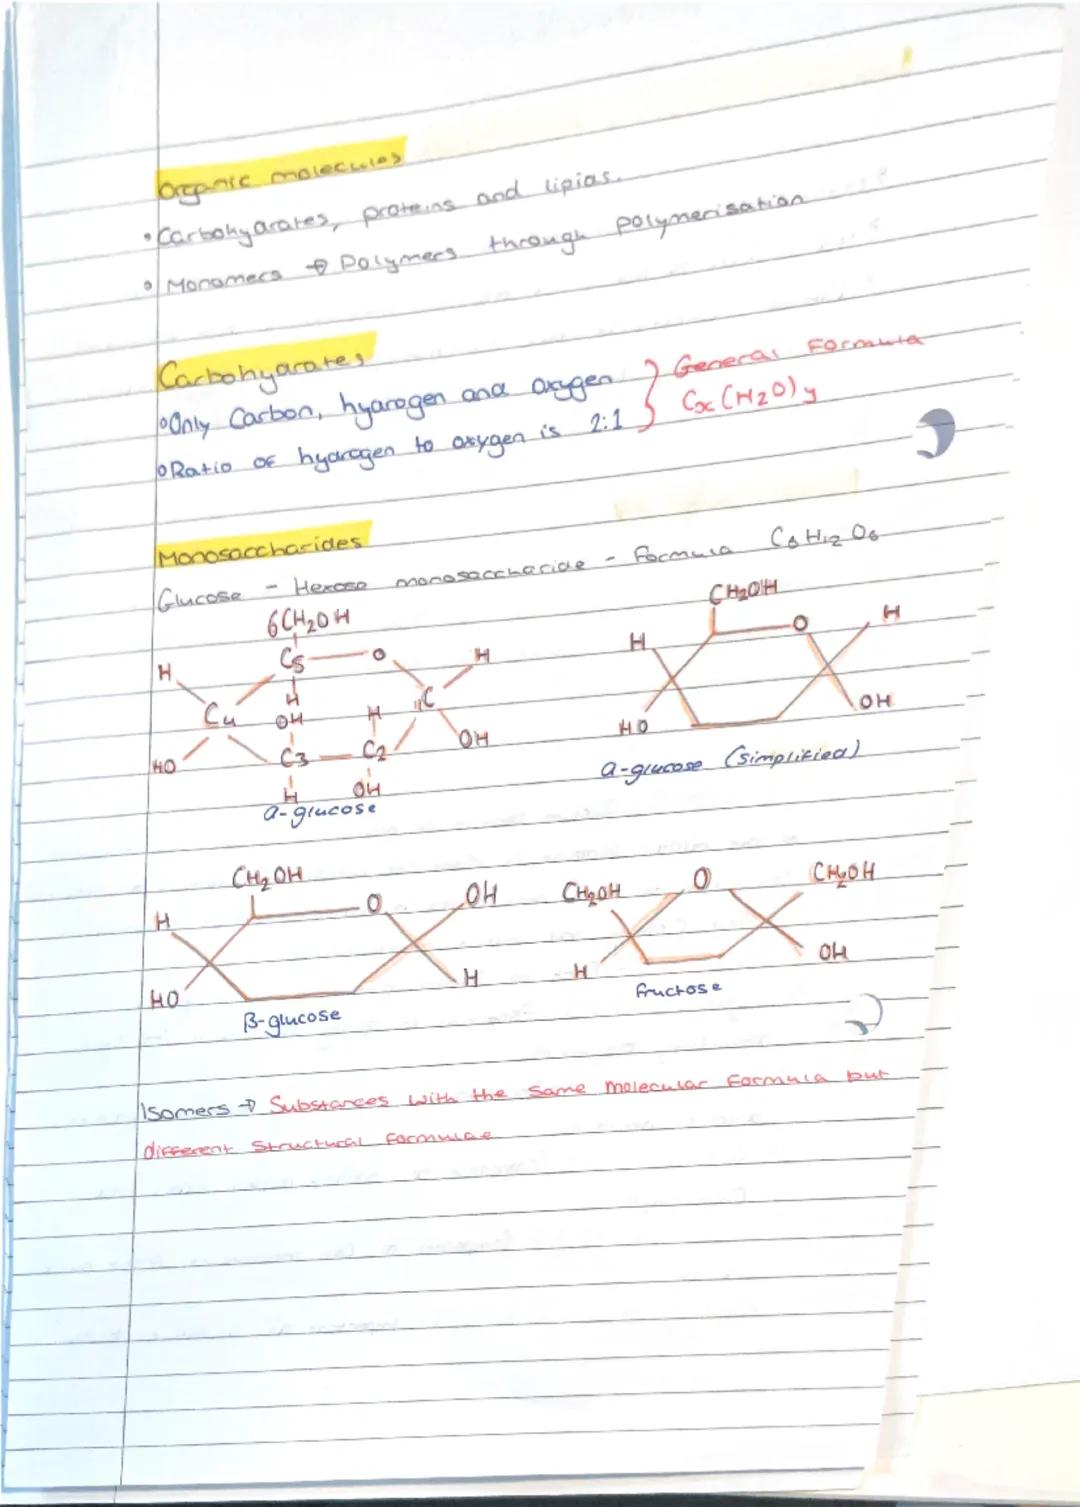 Organic molecules
• Carbohydrates, proteins and lipids.
• Monomers → Polymers through polymerisation
Carbohydrates
• Only Carbon, hydrogen and oxygen } General Formula
• Ratio of hydrogen to oxygen is 2:1 Cx(H2O)y
Monosaccharides
Glucose - Hexose monosaccharide - formula C6H12O6
6CH2OH
CH2OH
H C5 O H
H O H
C4 H OH H 1C
HO C3 C2 OH
HO OH
H OH
α-glucose
α-glucose (simplified)
CH2OH
H O OH
HO H
β-glucose
CH2OH O CH2OH
H OH
fructose
Isomers → Substances with the same molecular formula but
different structural formulae